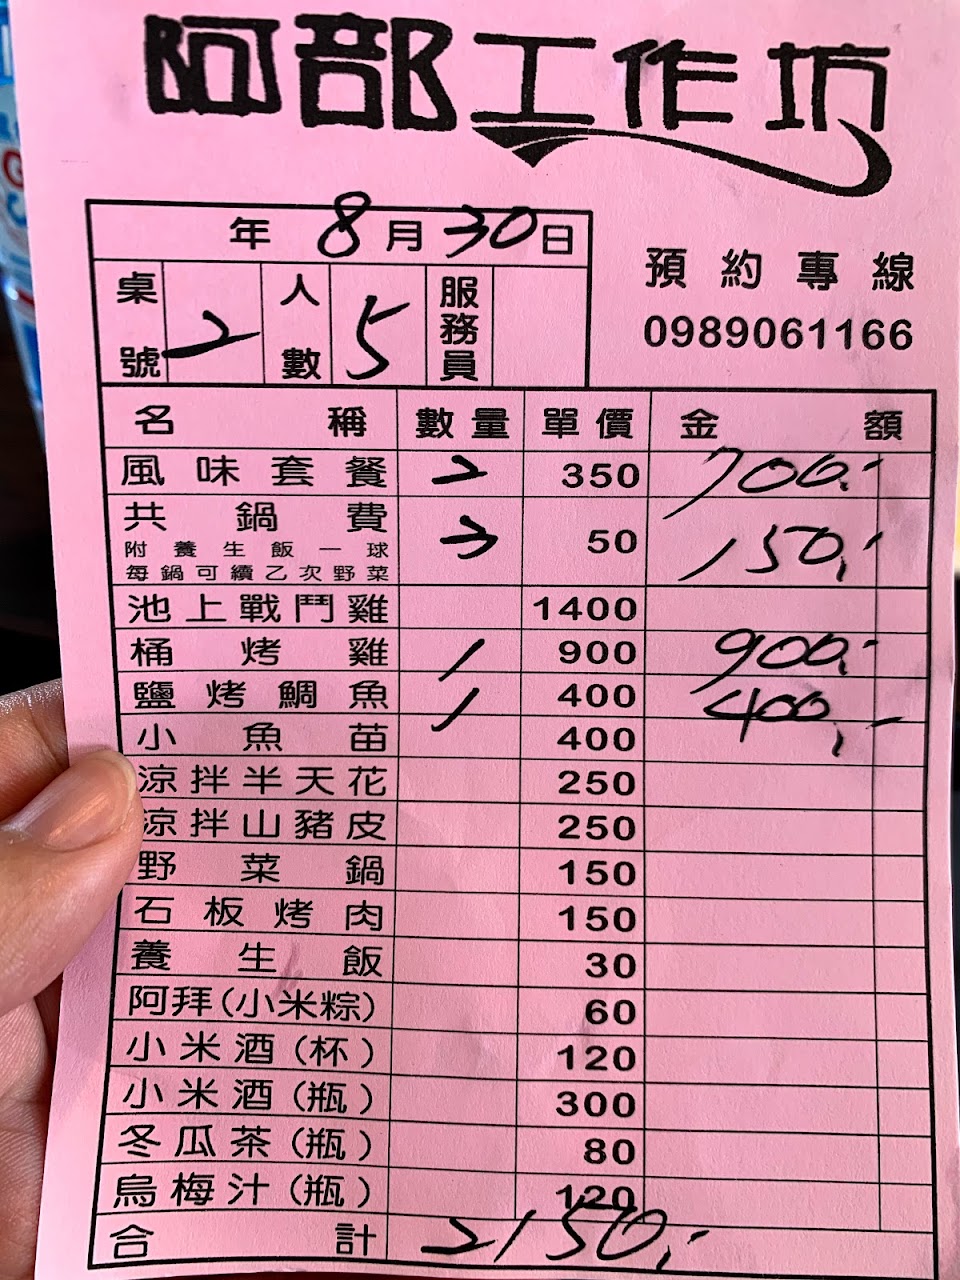 阿部工作坊
年 8月30日
預約專線
0989061166
桌號 2 人數 5 服務員
名稱 數量 單價 金額
風味套餐 2 350 700.-
共鍋費 3 50 150.-
附養生飯一球
每鍋可續乙次野菜
池上戰鬥雞 1400
桶烤雞 1 900 900.-
鹽烤鯛魚 1 400 400.-
小魚苗 400
涼拌半天花 250
涼拌山豬皮 250
野菜鍋 150
石板烤肉 150
養生飯 30
阿拜(小米粽) 60
小米酒(杯) 120
小米酒(瓶) 300
冬瓜茶(瓶) 80
烏梅汁(瓶) 120
合計 2150.-